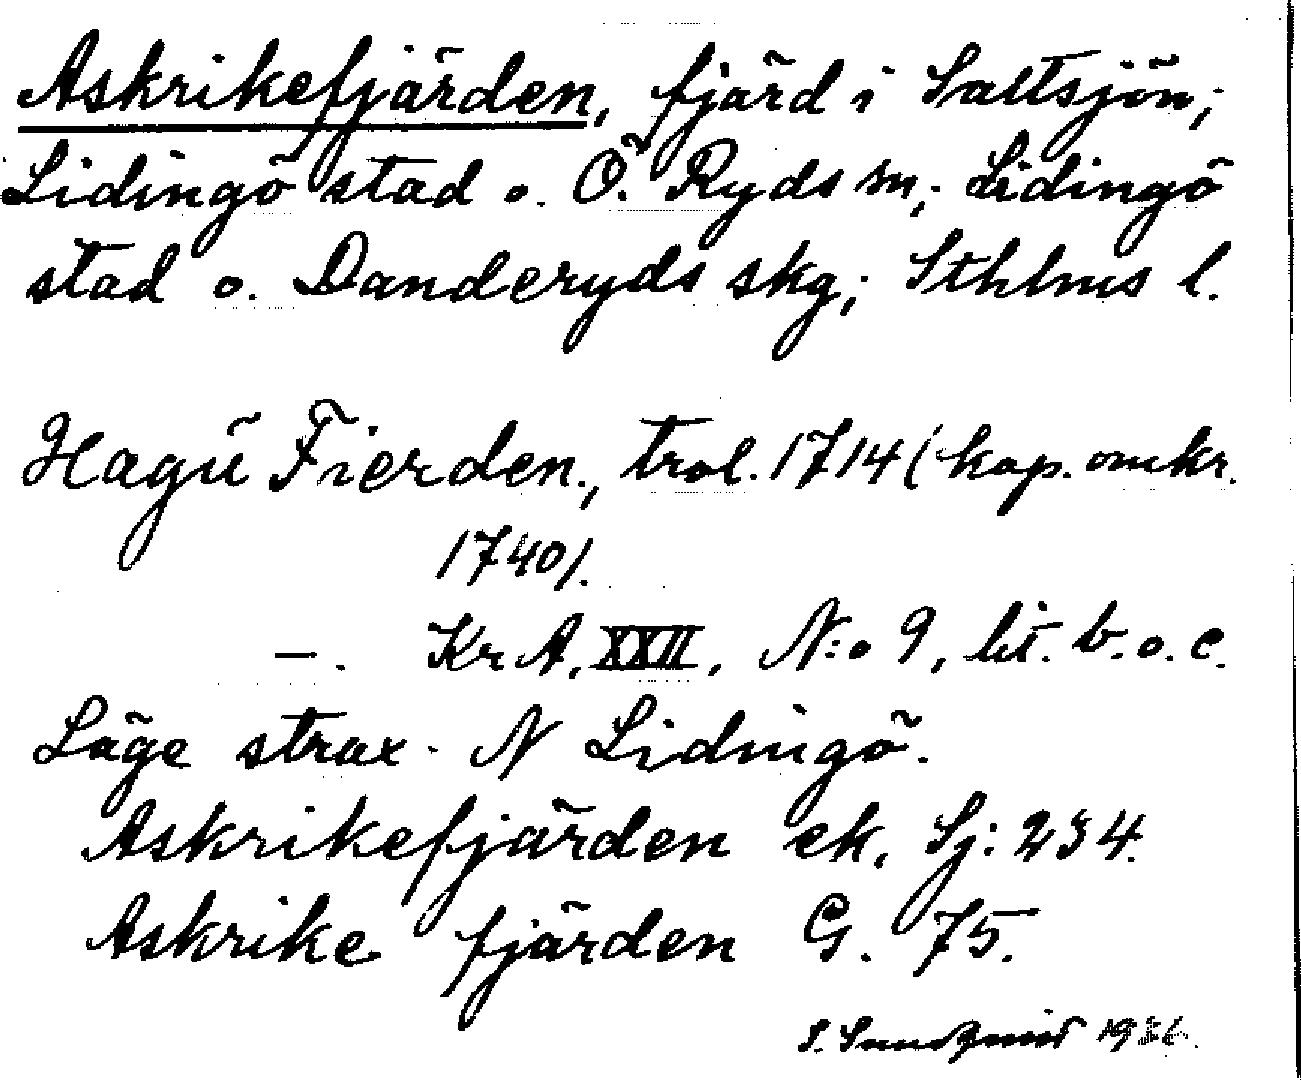 Askrikefjärden, fjärd i Saltsjön;
Lidingö stad o. Ö. Ryds sn; Lidingö
stad o. Danderyds skg; Sthlms l.
Hagū Fierden., trol. 1714 (kop. omkr.
1740).
—. KrA, XXII, N:o 9, lit. b. o. c.
Läge strax N Lidingö.
Askrikefjärden ek. Sj: 234.
Askrike fjärden G. 75.
S. Sundqvist 1936.